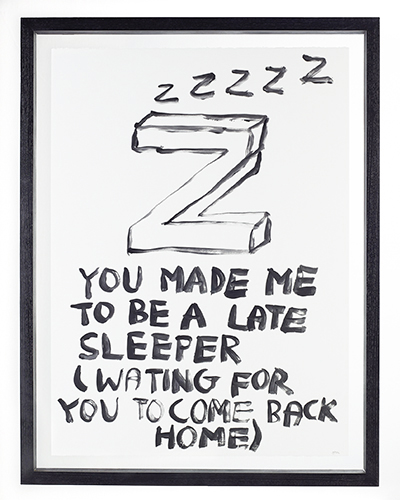 Z Z Z Z Z
Z
YOU MADE ME
TO BE A LATE
SLEEPER
(WATING FOR
YOU TO COME BACK
HOME)